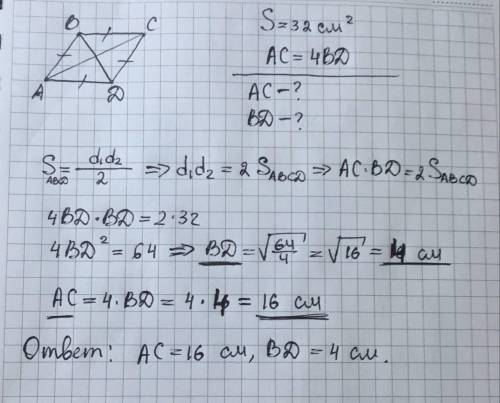 B C
A D
S = 32 см²
AC = 4BD
AC - ?
BD - ?
S_ABCD = d₁d₂/2 => d₁d₂ = 2 S_ABCD => AC·BD = 2 S_ABCD
4BD·BD = 2·32
4BD² = 64 => BD = √(64/4) = √16 = 4 см
AC = 4·BD = 4·4 = 16 см
Ответ: AC = 16 см, BD = 4 см.